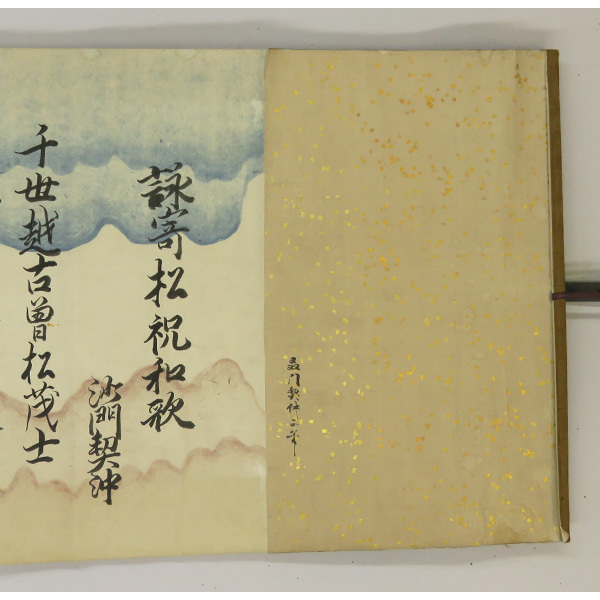 契沖之筆
詠寄松祝和歌
沙門契沖
千世越古曽松茂士